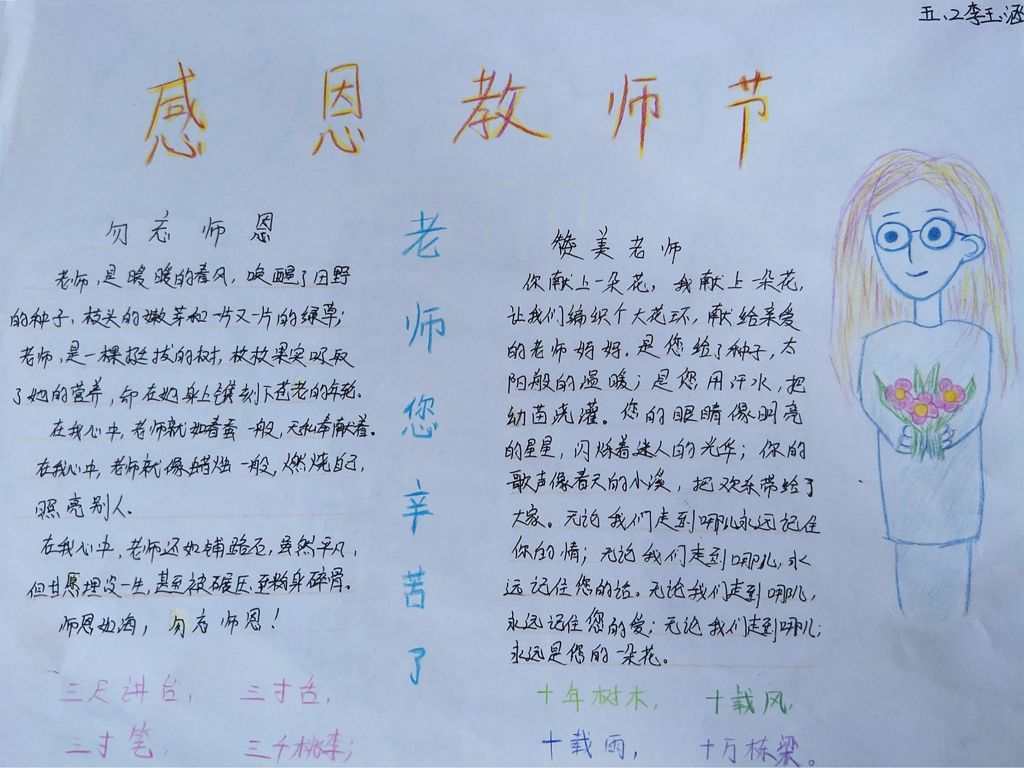 五.2李玉涵
感恩教师节
勿忘师恩
老师,是暖暖的春风,唤醒了田野
的种子、枝头的嫩芽和一片又一片的绿草;
老师,是一棵挺拔的树,枚枚果实吸取
了她的营养,却在她身上镌刻下苍老的年轮。
在我心中,老师就如春蚕一般,无私奉献着。
在我心中,老师就像蜡烛一般,燃烧自己,
照亮别人。
在我心中,老师还如铺路石,虽然平凡,
但甘愿埋没一生,甚至被碾压至粉身碎骨。
师恩如海,勿忘师恩!
老师您辛苦了
赞美老师
你献上一朵花,我献上一朵花,
让我们编织个大花环,献给亲爱
的老师妈妈。是您给了种子,太
阳般的温暖;是您用汗水,把
幼苗浇灌。您的眼睛像明亮
的星星,闪烁着迷人的光华;你的
歌声像春天的小溪,把欢乐带给了
大家。无论我们走到哪儿永远记住
你的情;无论我们走到哪儿,永
远记住您的话。无论我们走到哪儿,
永远记住您的爱;无论我们走到哪儿;
永远是您的一朵花。
三尺讲台,三寸舌,
三寸笔,三千桃李;
十年树木,十载风,
十载雨,十万栋梁。